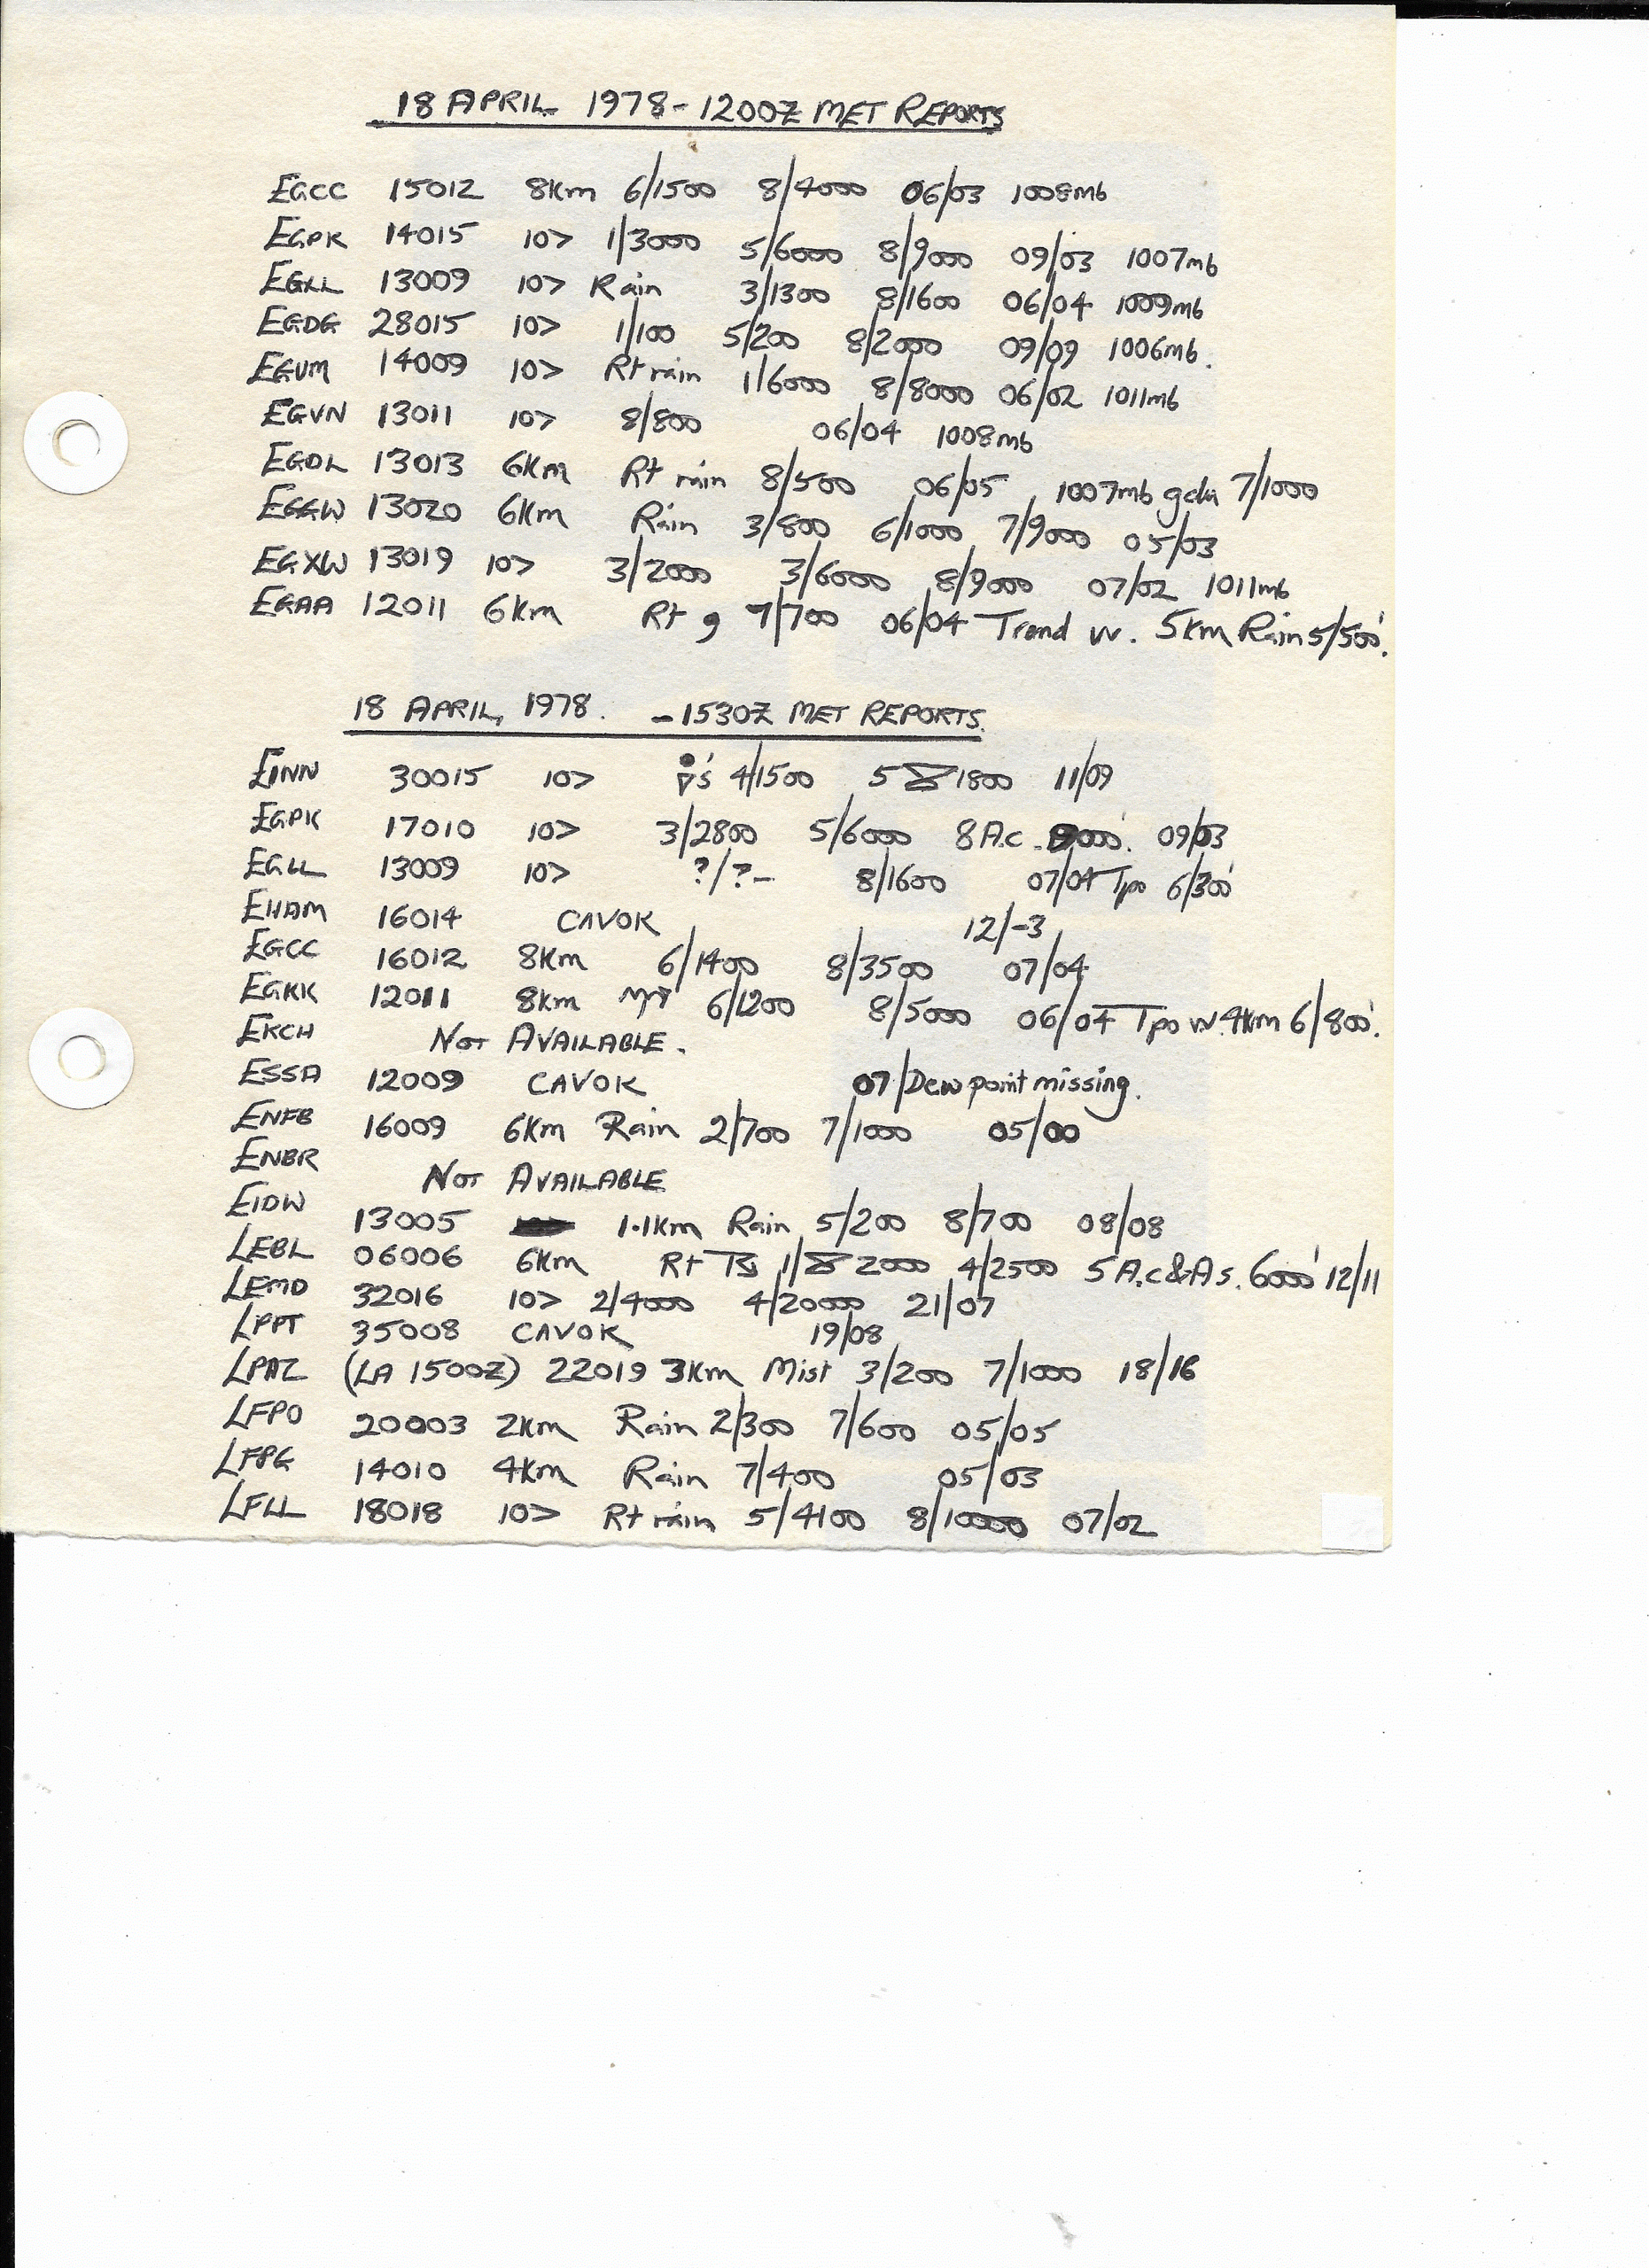 18 APRIL 1978 - 1200Z MET REPORTS
EGCC 15012 8Km 6/1500 8/4000 06/03 1008mb
EGPK 14015 10> 1/3000 5/6000 8/9000 09/03 1007mb
EGLL 13009 10> Rain 3/1300 8/1600 06/04 1009mb
EGDG 28015 10> 1/100 5/200 8/2000 09/09 1006mb.
EGUM 14009 10> Rt rain 1/6000 8/8000 06/02 1011mb
EGVN 13011 10> 8/800 06/04 1008mb
EGDL 13013 6Km Rt rain 8/500 06/05 1007mb 7/1000
EGGW 13020 6Km Rain 3/800 6/1000 7/9000 05/03
EGXW 13019 10> 3/2000 3/6000 8/9000 07/02 1011mb
EGAA 12011 6Km Rt 7/700 06/04 Trend w. 5km Rain 5/500'.
18 APRIL, 1978. - 1530Z MET REPORTS.
EINN 30015 10> 4/1500 5 1800 11/09
EGPK 17010 10> 3/2800 5/6000 8 A.c. 9000'. 09/03
EGLL 13009 10> ?/?- 8/1600 07/04 Tpo 6/300'
EHAM 16014 CAVOK 12/-3
EGCC 16012 8Km 6/1400 8/3500 07/04
EGKK 12011 8km 6/1200 8/5000 06/04 Tpo w. 4km 6/800'.
EKCH NOT AVAILABLE.
ESSA 12009 CAVOK 07/Dew point missing.
ENFB 16009 6Km Rain 2/700 7/1000 05/00
ENBR NOT AVAILABLE
EIDW 13005 1.1km Rain 5/200 8/700 08/08
LEBL 06006 6Km Rt 1/ 2000 4/2500 5 A.c & A s. 6000' 12/11
LEMD 32016 10> 2/4000 4/20000 21/07
LPPT 35008 CAVOK 19/08
LPAZ (LA 1500Z) 22019 3Km Mist 3/200 7/1000 18/16
LFPO 20003 2Km Rain 2/300 7/600 05/05
LFPG 14010 4Km Rain 7/400 05/03
LFLL 18018 10> Rt rain 5/4100 8/10000 07/02